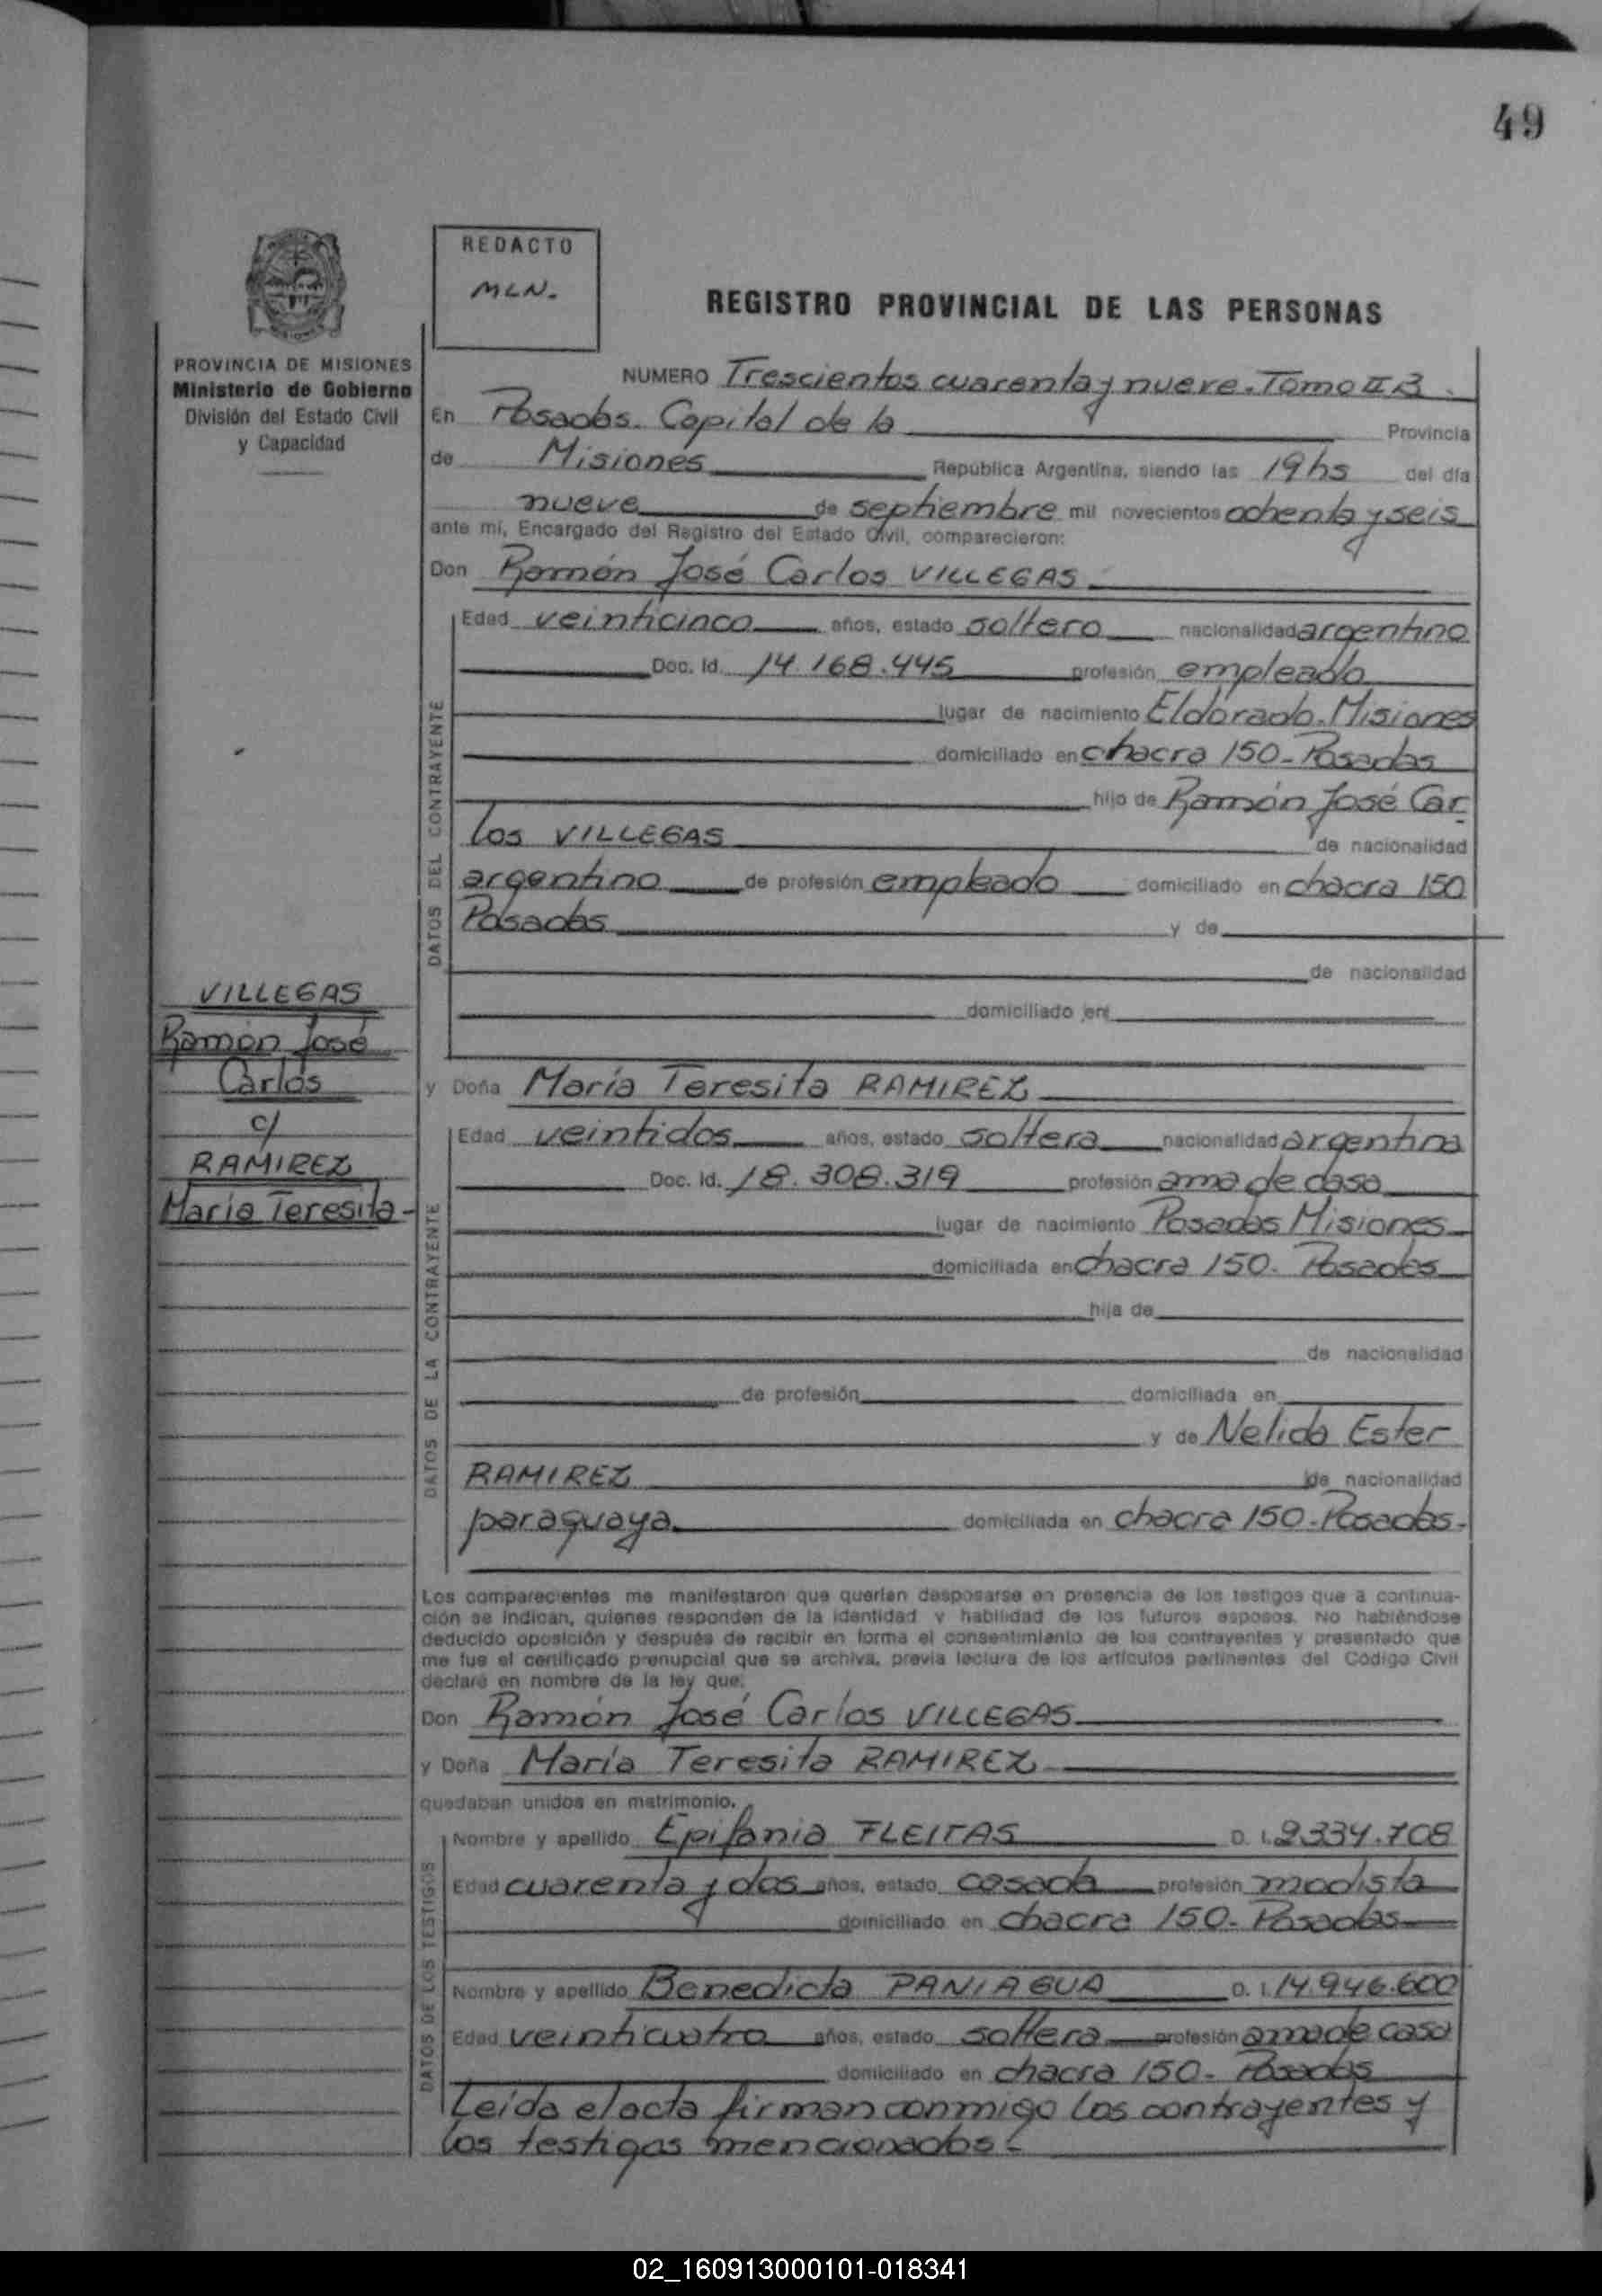 49
REDACTO
MLN.
REGISTRO PROVINCIAL DE LAS PERSONAS
PROVINCIA DE MISIONES
Ministerio de Gobierno
División del Estado Civil
y Capacidad
NUMERO Trescientos cuarenta y nueve. Tomo II B.
En Posadas. Capital de la Provincia
de Misiones República Argentina, siendo las 19 hs del día
nueve de septiembre mil novecientos ochenta y seis
ante mí, Encargado del Registro del Estado Civil, comparecieron:
Don Ramón José Carlos VILLEGAS
DATOS DEL CONTRAYENTE
Edad veinticinco años, estado soltero nacionalidad argentino
Doc. Id. 14.168.445 profesión empleado
lugar de nacimiento Eldorado. Misiones
domiciliado en chacra 150 - Posadas
hijo de Ramón José Car
los VILLEGAS de nacionalidad
argentino de profesión empleado domiciliado en chacra 150
Posadas y de
de nacionalidad
domiciliado en
VILLEGAS
Ramón José
Carlos
c/
RAMIREZ
María Teresita
y Doña María Teresita RAMIREZ
DATOS DE LA CONTRAYENTE
Edad veintidos años, estado soltera nacionalidad argentina
Doc. Id. 18.308.319 profesión ama de casa
lugar de nacimiento Posadas Misiones
domiciliada en chacra 150. Posadas
hija de
de nacionalidad
de profesión domiciliada en
y de Nelida Ester
RAMIREZ de nacionalidad
paraguaya domiciliada en chacra 150 - Posadas -
Los comparecientes me manifestaron que querían desposarse en presencia de los testigos que a continua-
ción se indican, quienes responden de la identidad y habilidad de los futuros esposos. No habiéndose
deducido oposición y después de recibir en forma el consentimiento de los contrayentes y presentado que
me fue el certificado prenupcial que se archiva, previa lectura de los artículos pertinentes del Código Civil
declaré en nombre de la ley que:
Don Ramón José Carlos VILLEGAS
y Doña María Teresita RAMIREZ
quedaban unidos en matrimonio.
DATOS DE LOS TESTIGOS
Nombre y apellido Epifania FLEITAS D. I. 9.334.708
Edad cuarenta y dos años, estado casada profesión modista
domiciliado en chacra 150 - Posadas
Nombre y apellido Benedicta PANIAGUA D. I. 14.946.600
Edad veinticuatro años, estado soltera profesión ama de casa
domiciliado en chacra 150 - Posadas
Leída el acta firman conmigo los contrayentes y
los testigos mencionados -
02_160913000101-018341